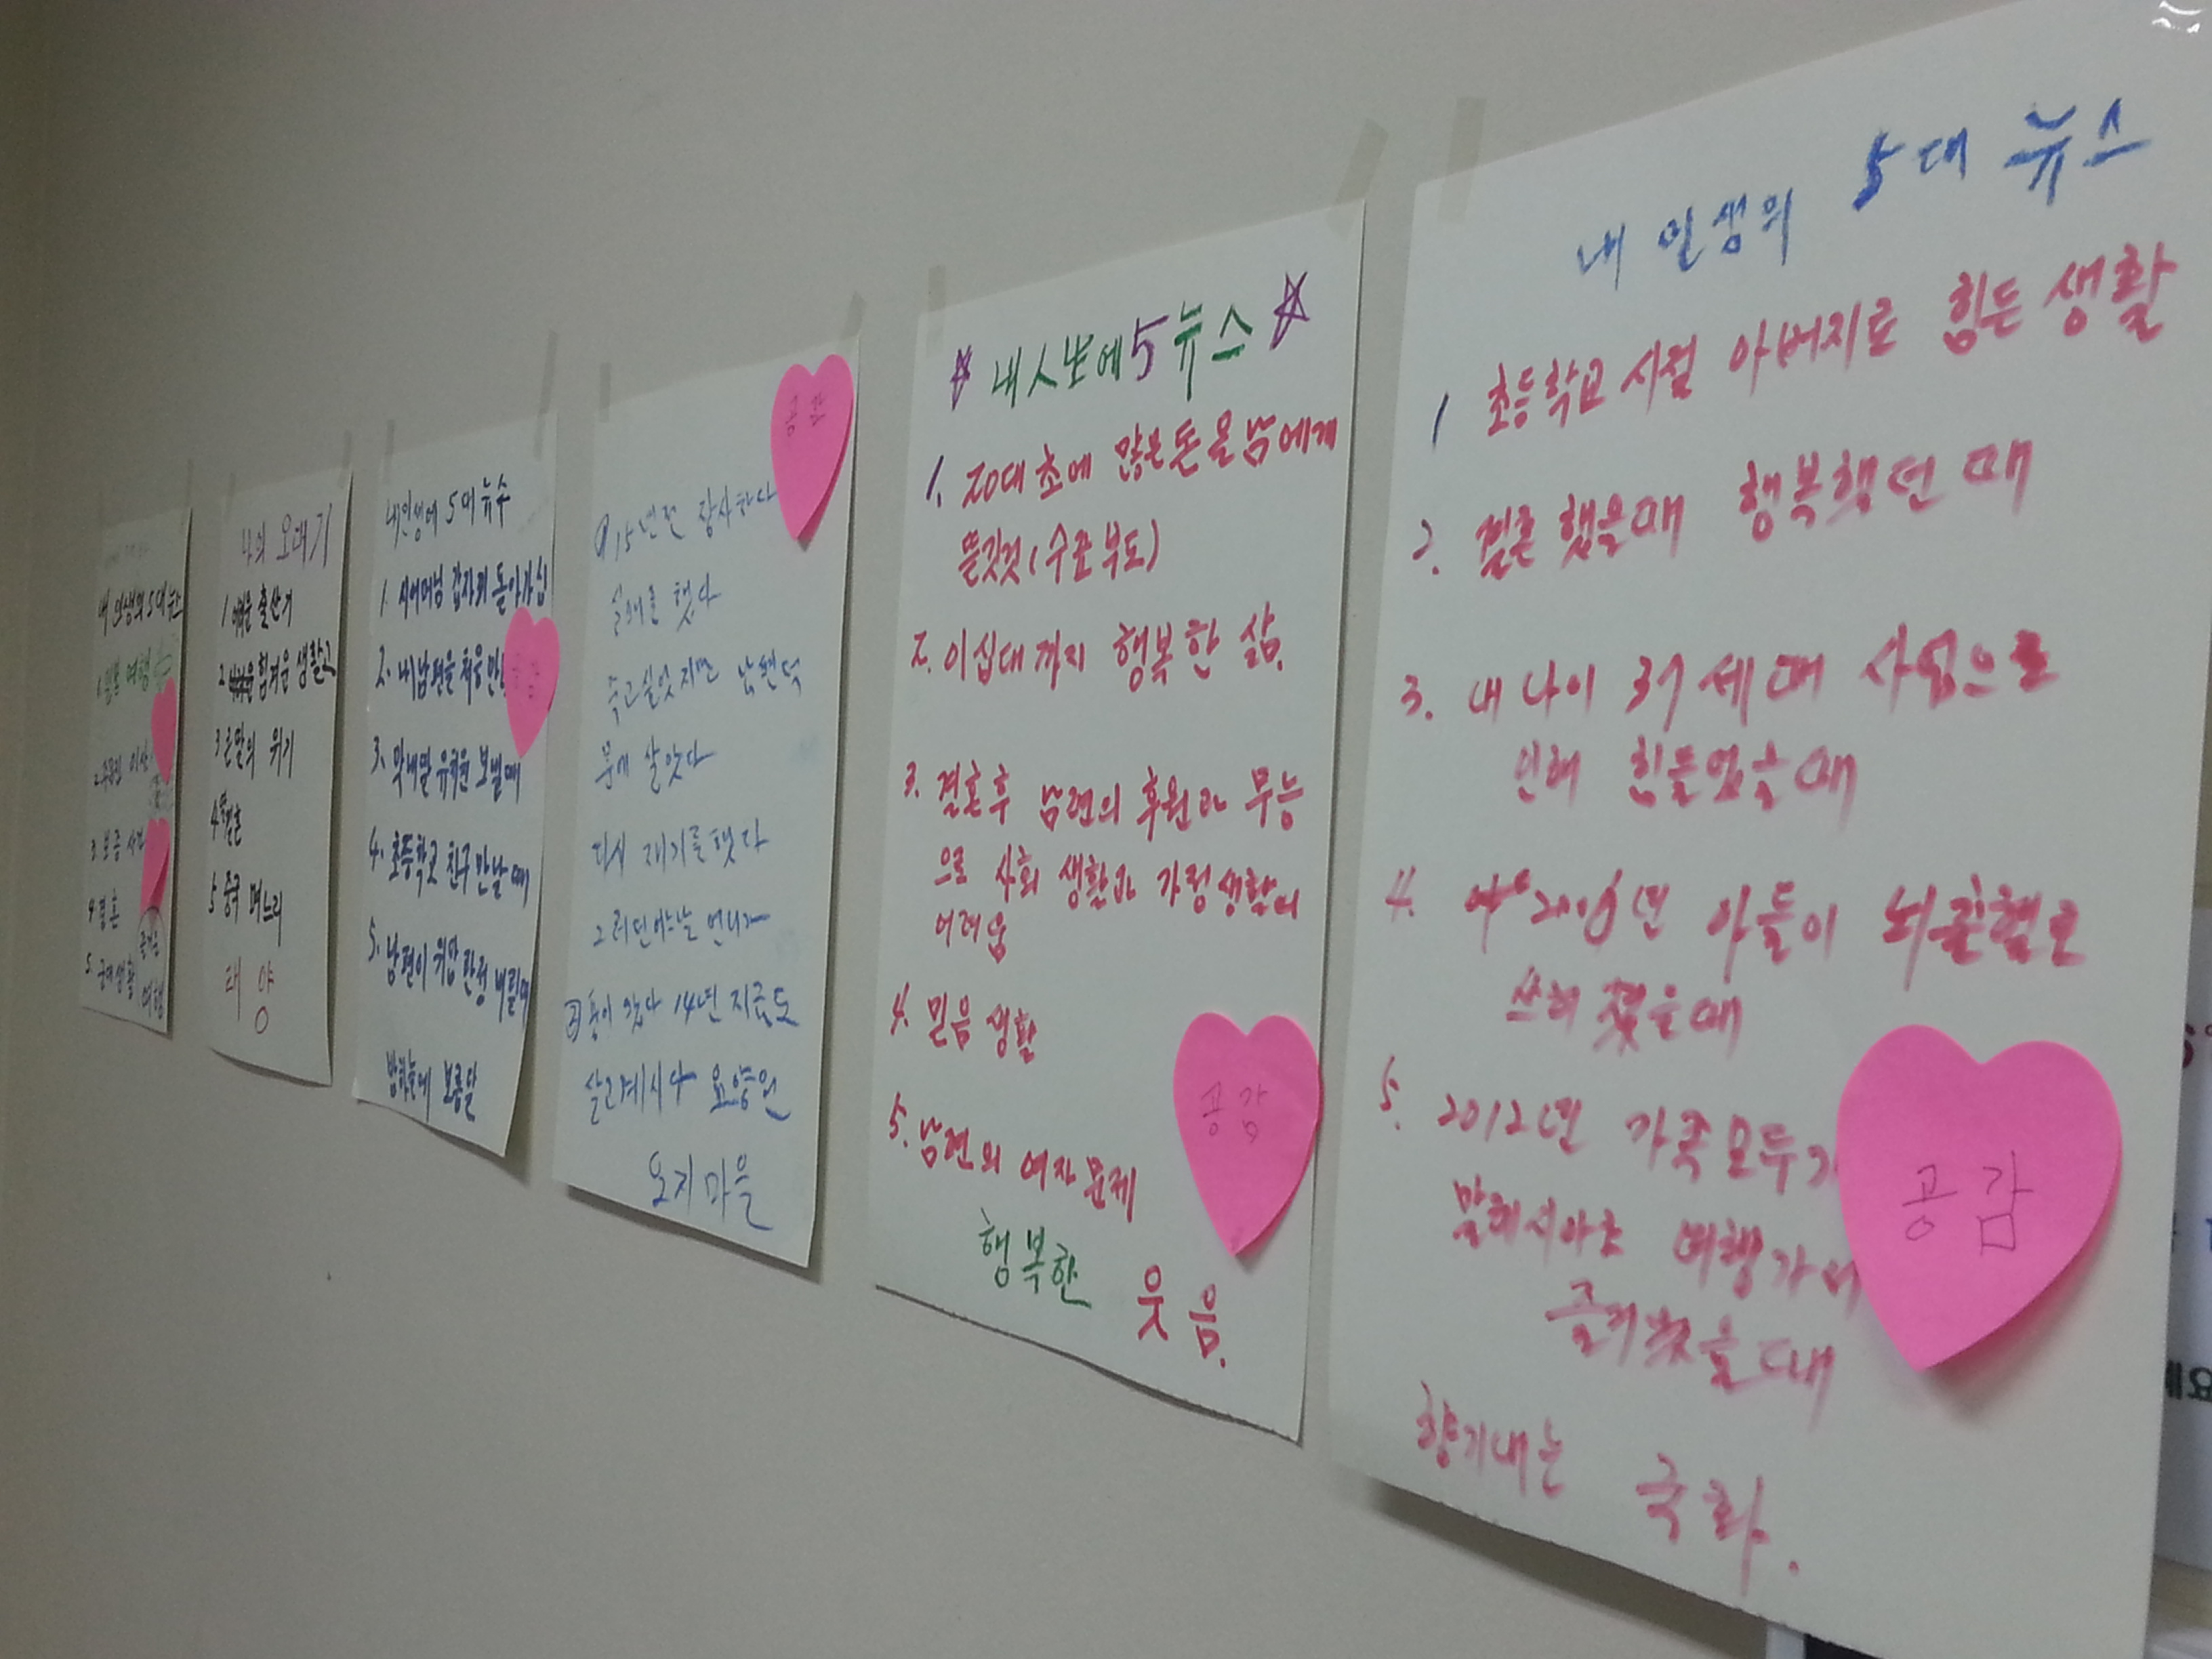 내 인생의 5대 뉴스
1. 결혼
2.
3.
4. 결혼
5. 군대생활
즐거운
여행
나의 오대기
1 출산기
2 힘겨운 생활고
3 은말의 위기
4 결혼
5 중국 며느리
태양
내인생에 5대 뉴수
1. 시어머님 갑자키 돌아가심
2. 내남편을 처음 만
3. 막내딸 유치원 보낼때
4. 초등학교 친구 만날때
5. 남편이 위암 판정 내릴때
밤하늘에 보름달
공감
①15년전 장사하다
실패를 했다
죽고싶엇지만 남편덕
분에 살앗다
다시 재기를 했다
그러던어느날 언니가
②풍이 왔다 14년 지금도
살고계시다 요양원
오지마을
공감
내人生에5뉴스
1. 20대 초에 많은돈을남에게
뜯긴것(수표부도)
2. 이십대까지 행복한 삶.
3. 결혼후 남편의 후원과 무능
으로 사회 생활과 가정생활의
어려움
4. 믿음 생활
5. 남편의 여자문제
행복한 웃음.
공감
내 인생의 5대 뉴스
1 초등학교 시절 아버지로 힘든 생활
2. 결혼 했을때 행복했던 때
3. 내 나이 37세때 사업으로
인해 힘들었을때
4. 아들이 뇌출혈로
쓰러 졌을때
5. 2012년 가족모두가
말레시아로 여행가서
즐거웠을때
향기내는 국화.
공감